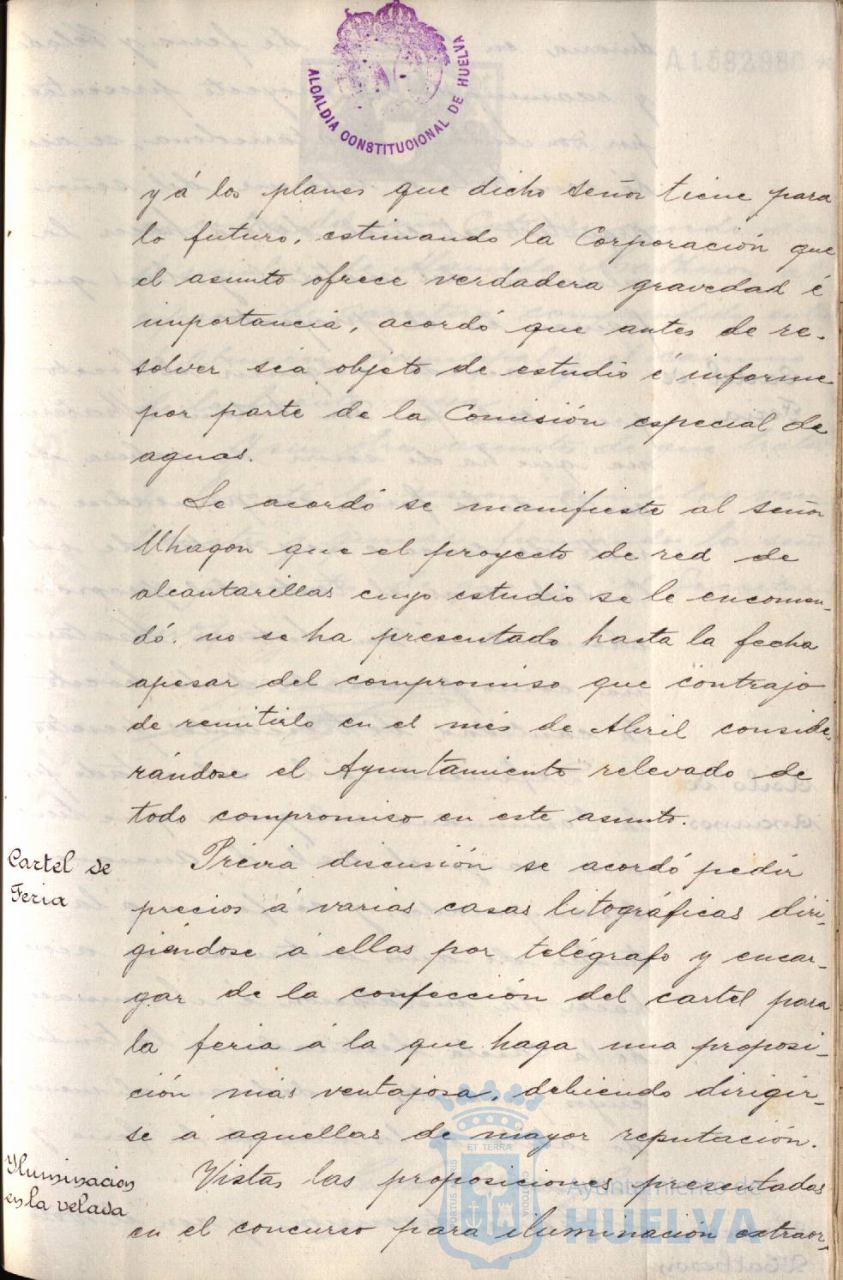 ALCALDIA CONSTITUCIONAL DE HUELVA
y á los planes que dicho señor tiene para
lo futuro, estimando la Corporación que
el asunto ofrece verdadera gravedad é
importancia, acordó que antes de re-
solver sea objeto de estudio é informe
por parte de la Comisión especial de
aguas.
Se acordó se manifieste al señor
Uhagon que el proyecto de red de
alcantarillas cuyo estudio se le encomen-
dó, no se ha presentado hasta la fecha
apesar del compromiso que contrajo
de remitirlo en el més de Abril conside-
rándose el Ayuntamiento relevado de
todo compromiso en este asunto.
Cartel de
Feria
Prévia discusión se acordó pedir
precios á varias casas litográficas diri-
giéndose á ellas por telégrafo y encar-
gar de la confección del cartel para
la feria á la que haga una proposi-
ción más ventajosa, debiendo dirigir-
se á aquellas de mayor reputación.
Yluminacion
en la velada
Vistas las proposiciones presentadas
en el concurso para iluminación extraor-
ET TERRA
Ayuntamiento de
HUELVA